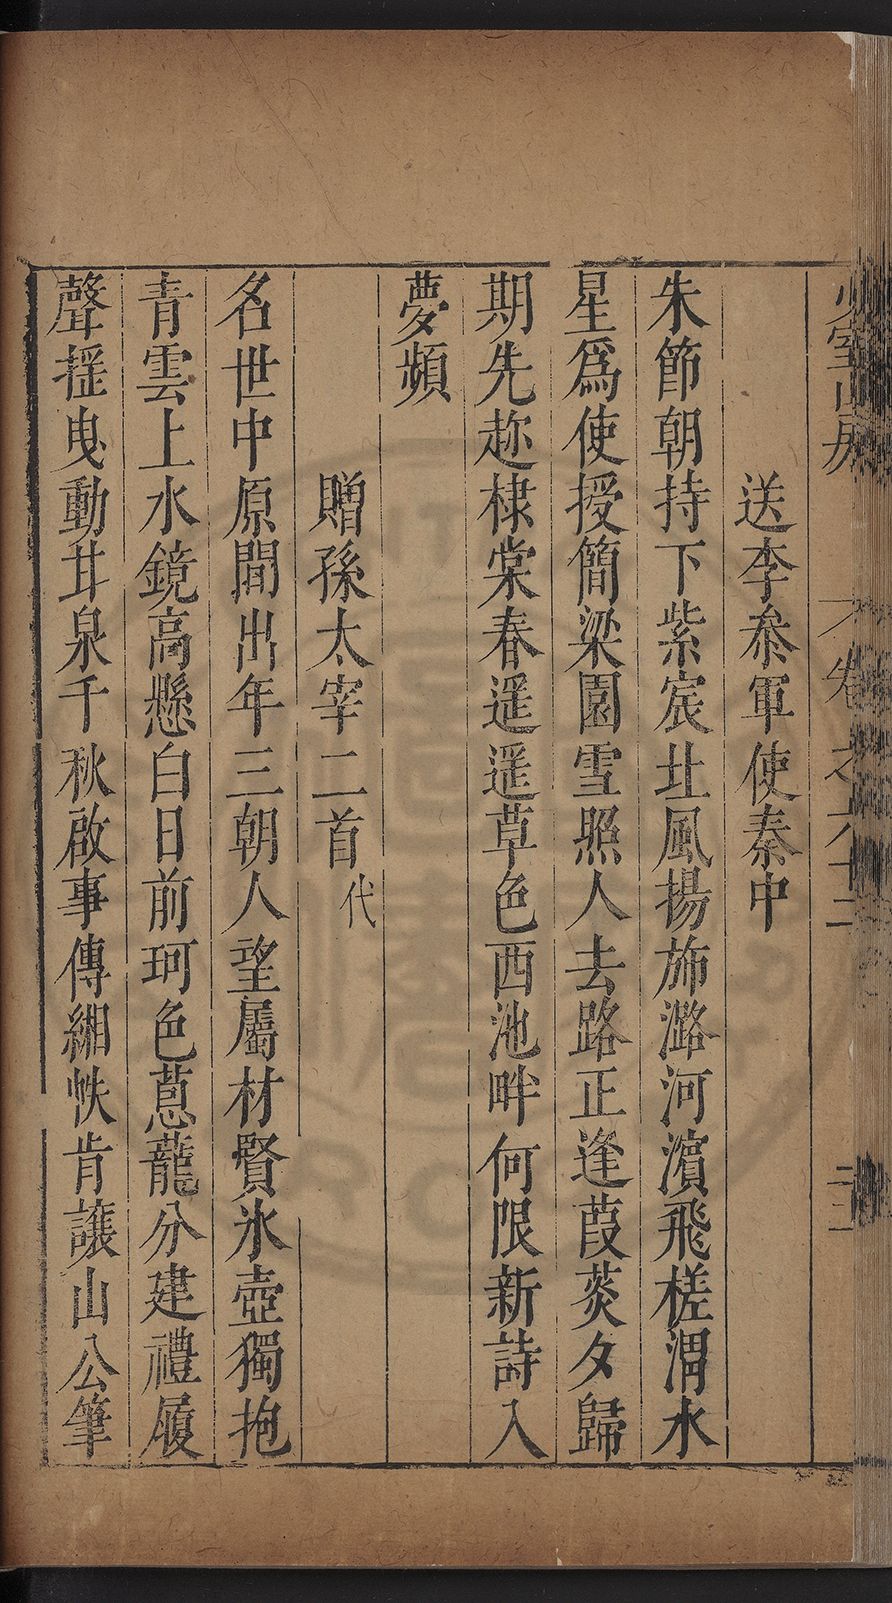 少室山房 卷之六十二 二三
送李叅軍使秦中
朱節朝持下紫宸北風揚斾潞河濵飛槎渭水
星爲使授簡梁園雪照人去路正逢葭菼夕歸
期先趂棣棠春遥遥草色西池畔何限新詩入
夢頻
贈孫太宰二首代
名世中原間出年三朝人望屬材賢氷壺獨抱
青雲上水鏡高懸白日前珂色蔥蘢分建禮履
聲揺曳動甘泉千秋啟事傳緗帙肯讓山公筆